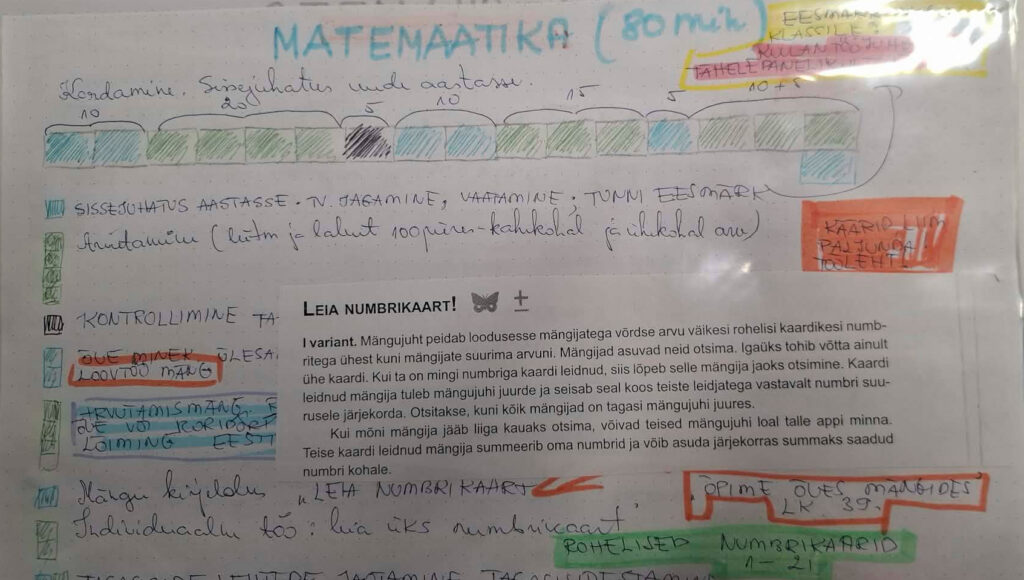 MATEMAATIKA (80 min)
EESMÄRK
KLASSILE:
KUULAN TÖÖJUH
TÄHELEPANELIKULT
Kordamine. Sissejuhatus uude aastasse.
10 20 5 10 15 5 10+5
SISSEJUHATUS AASTASSE. TV. JAGAMINE, VAATAMINE, TUNNI EESMÄRK
Arvutamine (liitm ja lahut 100 piires - kahekohal ja ühekohal arv)
KÄÄRID LIIM
PALJUNDA
TÖÖLEHT!
KONTROLLIMINE TA
LEIA NUMBRIKAART! ±
I variant. Mängujuht peidab loodusesse mängijatega võrdse arvu väikesi rohelisi kaardikesi numb-
ritega ühest kuni mängijate suurima arvuni. Mängijad asuvad neid otsima. Igaüks tohib võtta ainult
ühe kaardi. Kui ta on mingi numbriga kaardi leidnud, siis lõpeb selle mängija jaoks otsimine. Kaardi
leidnud mängija tuleb mängujuhi juurde ja seisab seal koos teiste leidjatega vastavalt numbri suu-
rusele järjekorda. Otsitakse, kuni kõik mängijad on tagasi mängujuhi juures.
Kui mõni mängija jääb liiga kauaks otsima, võivad teised mängujuhi loal talle appi minna.
Teise kaardi leidnud mängija summeerib oma numbrid ja võib asuda järjekorras summaks saadud
numbri kohale.
ÕUE MINEK ÜLESA
LOOVTÖÖ MÄNG
ARVUTAMISMÄNG
ÕUE VÕI KORIDORI
LÕIMING EESTI
Mängu kirjeldus „LEIA NUMBRIKAART"
Individuaalne töö: leia üks numbrikaart
„ÕPIME ÕUES MÄNGIDES"
LK 39.
ROHELISED NUMBRIKAARID
1-21